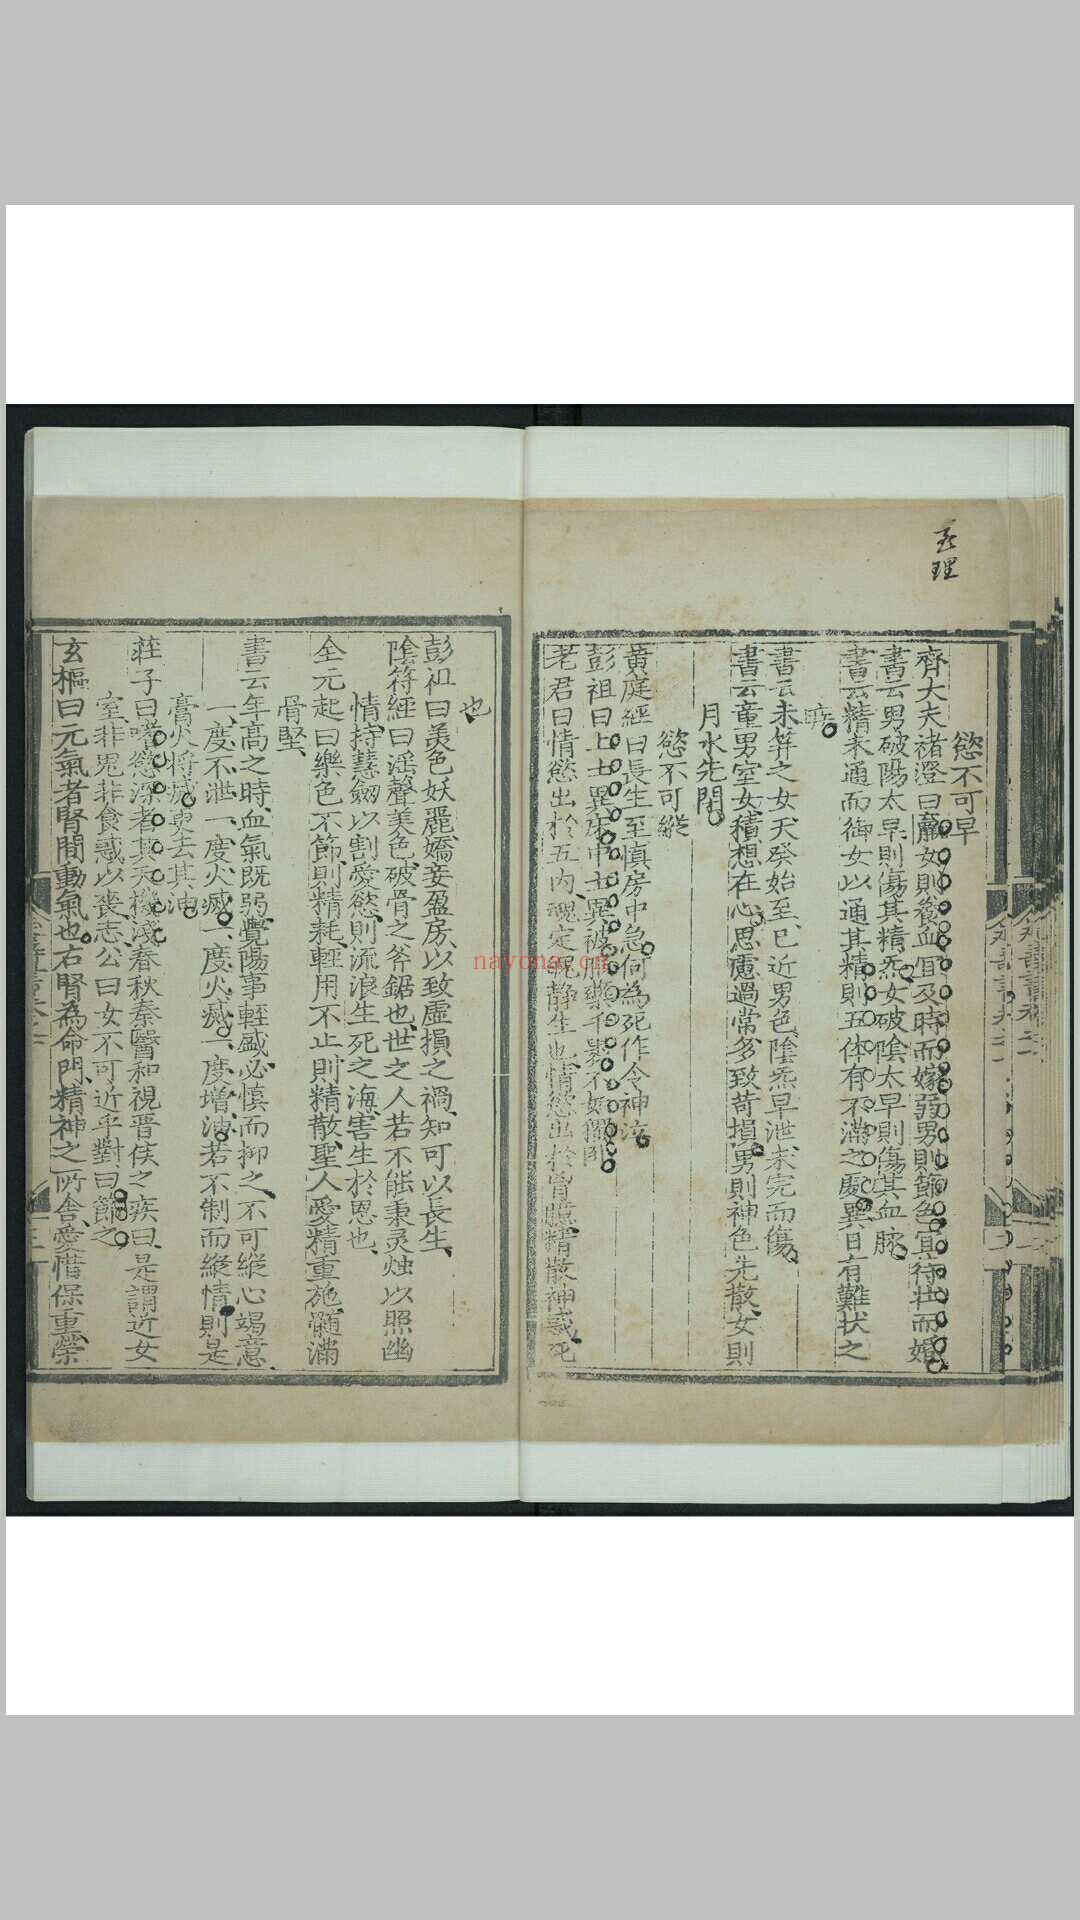 慾不可早
齊大夫褚澄曰羸女則養血宜及時而嫁弱男則節色宜待壯而婚
書云男破陽太早則傷其精炁女破陰太早則傷其血脉
書云精未通而御女以通其精則五体有不滿之處異日有難狀之
疾
書云未笄之女天癸始至已近男色陰炁早泄未完而傷
書云童男室女積想在心思慮過常多致苛損男則神色先散女則
月水先閉
慾不可縱
黃庭經曰長生至慎房中急何為死作令神泣
彭祖曰上士異床中士異被服藥千裹不如獨卧
老君曰情慾出於五內魂定魄静生也情慾出於胷臆精散神惑死
也
彭祖曰美色妖麗嬌妾盈房以致虛損之禍知可以長生
陰符經曰滛聲美色破骨之斧鋸也世之人若不能秉灵烛以照幽
情持慧劔以割愛慾則流浪生死之海害生於恩也
全元起曰樂色不節則精耗輕用不止則精散聖人愛精重施髓滿
骨堅
書云年高之時血氣既弱覺陽事輙盛必慎而抑之不可縱心竭意
一度不泄一度火滅一度火滅一度增油若不制而縱情則是
膏火將滅更去其油
莊子曰嗜慾深者其天機淺春秋秦醫和視晋侯之疾曰是謂近女
室非鬼非食惑以喪志公曰女不可近乎對曰節之
玄樞曰元氣者腎間動氣也右腎為命門精神之所舍愛惜保重榮
理
nayona.cn